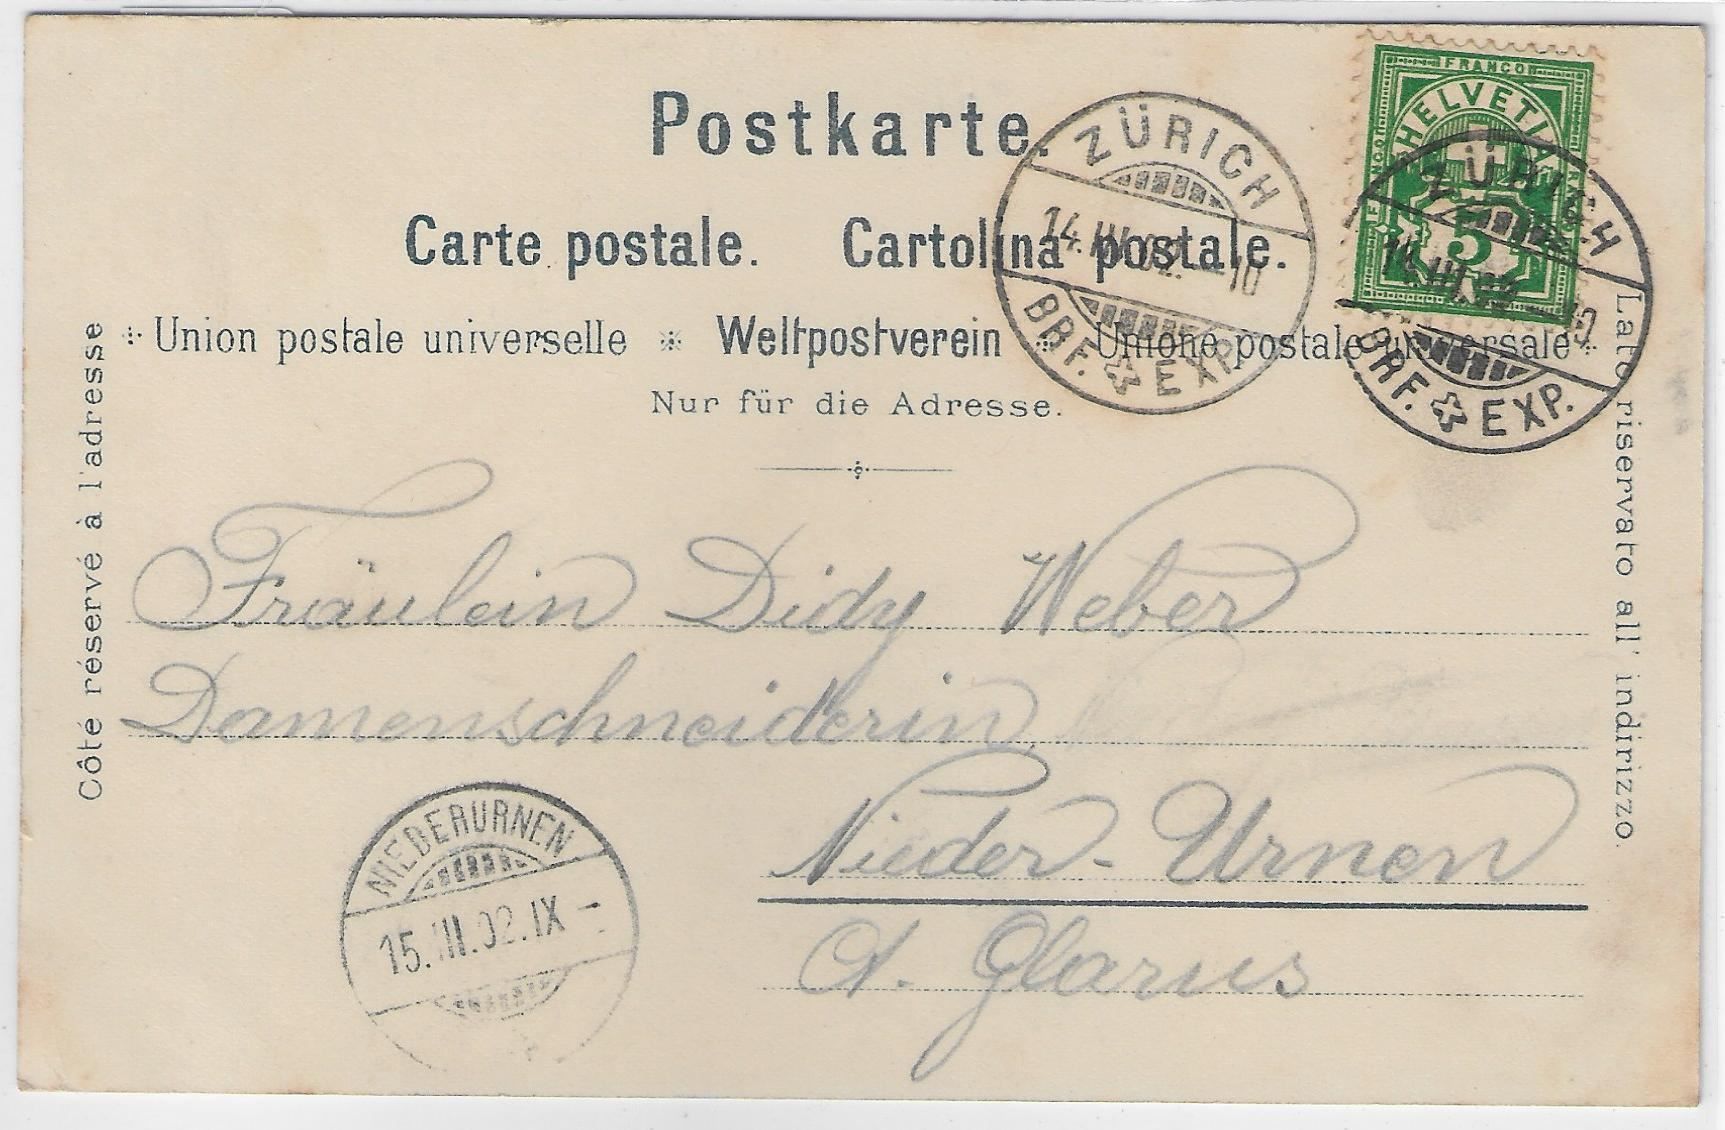 Postkarte.
Carte postale. Cartolina postale.
Union postale universelle Weltpostverein Unione postale universale
Nur für die Adresse.
Côté réservé à l'adresse
Lato riservato all' indirizzo.
FRANCO
HELVETIA
5
ZÜRICH
14.III.02.-10
BRF. EXP.
ZÜRICH
14.III.02.-10
BRF. EXP.
Fräulein Didy Weber
Damenschneiderin
Nieder-Urnen
Ct. Glarus
NIEDERURNEN
15.III.02.IX-